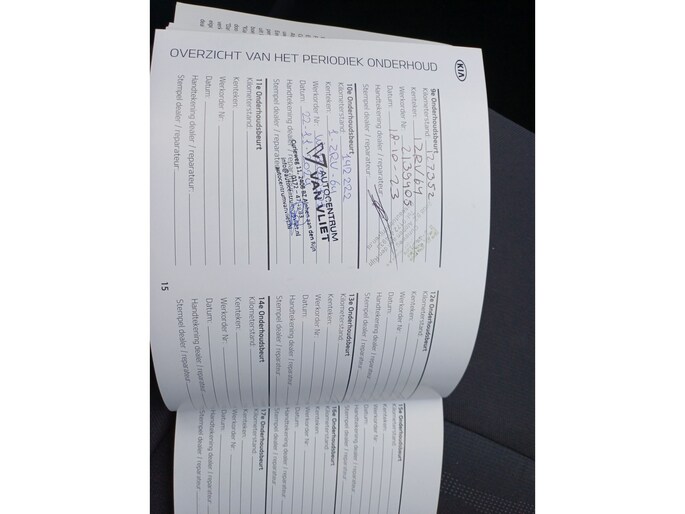 OVERZICHT VAN HET PERIODIEK ONDERHOUD
KIA
9e Onderhoudsbeurt
Kilometerstand:
Kenteken: 1-ZRV-64
Werkorder Nr: 2139405
Datum: 18-10-23
Handtekening dealer / reparateur:
Stempel dealer / reparateur:
10e Onderhoudsbeurt
Kilometerstand: 142222
Kenteken: 1-ZRV-64
Werkorder Nr:
Datum: 22-11
Handtekening dealer / reparateur:
Stempel dealer / reparateur:
AUTOCENTRUM
VAN VLIET
11e Onderhoudsbeurt
Kilometerstand:
Kenteken:
Werkorder Nr:
Datum:
Handtekening dealer / reparateur:
Stempel dealer / reparateur:
12e Onderhoudsbeurt
Kilometerstand:
Kenteken:
Werkorder Nr:
Datum:
Handtekening dealer / reparateur:
Stempel dealer / reparateur:
13e Onderhoudsbeurt
Kilometerstand:
Kenteken:
Werkorder Nr:
Datum:
Handtekening dealer / reparateur:
Stempel dealer / reparateur:
14e Onderhoudsbeurt
Kilometerstand:
Kenteken:
Werkorder Nr:
Datum:
Handtekening dealer / reparateur:
Stempel dealer / reparateur:
15
15e Onderhoudsbeurt
Kilometerstand:
Kenteken:
Werkorder Nr:
Datum:
Handtekening dealer / reparateur:
Stempel dealer / reparateur:
16e Onderhoudsbeurt
Kilometerstand:
Kenteken:
Werkorder Nr:
Datum:
Handtekening dealer / reparateur:
Stempel dealer / reparateur:
17e Onderhoudsbeurt
Kilometerstand:
Kenteken:
Werkorder Nr:
Datum:
Handtekening dealer / reparateur:
Stempel dealer / reparateur: